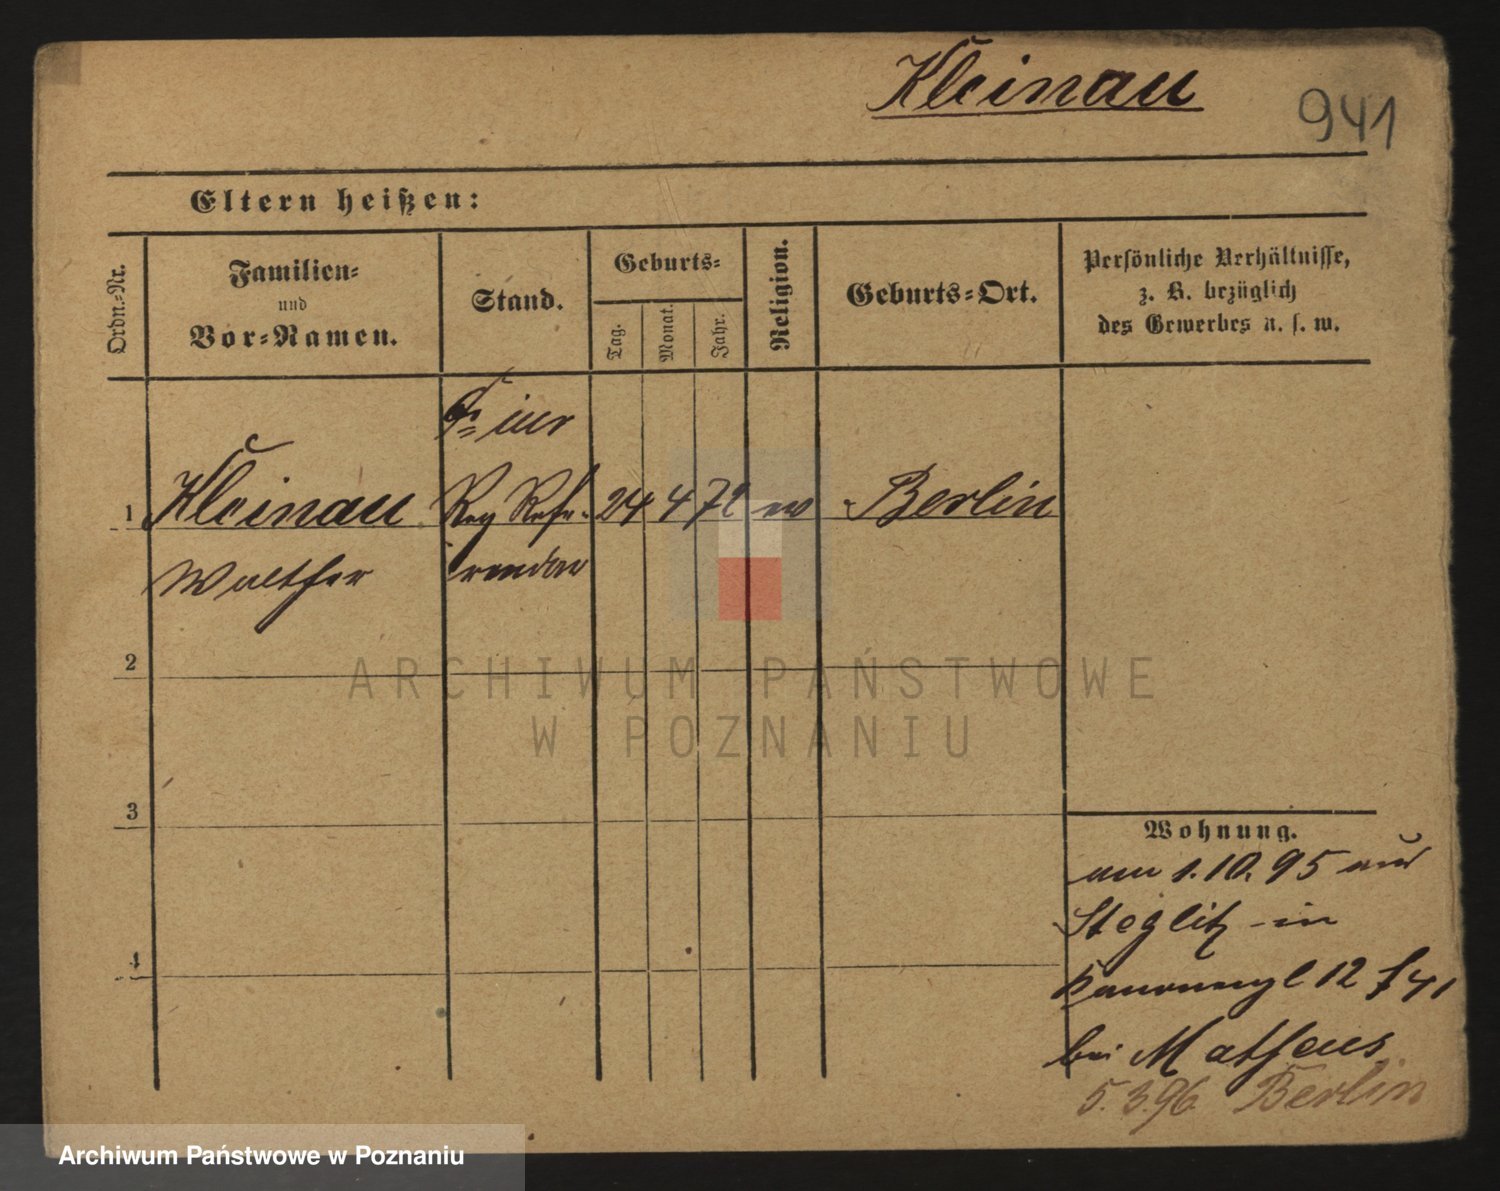 Kleinau
941
Eltern heißen:
Ordn.-Nr.
Familien-
und
Vor-Namen.
Stand.
Geburts-
Tag.
Monat.
Jahr.
Religion.
Geburts-Ort.
Persönliche Verhältnisse,
z. B. bezüglich
des Gewerbes u. s. w.
Dr jur
1 Kleinau Reg Refe- 24 4 72 ev Berlin
Walther rendar
2
3
4
Wohnung.
am 1.10.95 aus
Steglitz in
12 41
bei Matheus
5.3.96 Berlin
ARCHIWUM PAŃSTWOWE
W POZNANIU
Archiwum Państwowe w Poznaniu